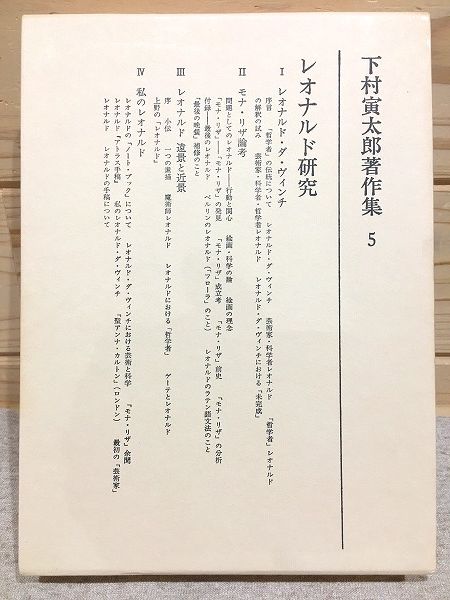 下村寅太郎著作集 5
レオナルド研究
I レオナルド・ダ・ヴィンチ
序言 「哲学者」の伝統について レオナルド・ダ・ヴィンチ 芸術家・科学者レオナルド 「哲学者」レオナルド
の解釈の試み 芸術家・科学者・哲学者レオナルド レオナルド・ダ・ヴィンチにおける「未完成」
II モナ・リザ論考
問題としてのレオナルド——行動と関心 絵画・科学の論 絵画の理念
「モナ・リザ」——「モナ・リザ」の発見 「モナ・リザ」成立考 「モナ・リザ」前史 「モナ・リザ」の分析
付録 最後のレオナルド ベルリンのレオナルド(「フローラ」のこと) レオナルドのラテン語文法のこと
「最後の晩餐」補修のこと
III レオナルド 遠景と近景
序 小伝 一つの素描 魔術師レオナルド レオナルドにおける「哲学者」 ゲーテとレオナルド
上野の「レオナルド」
IV 私のレオナルド
レオナルドの「ノート・ブック」について レオナルド・ダ・ヴィンチにおける芸術と科学 「モナ・リザ」余聞
レオナルド「アトラス手稿」 私のレオナルド・ダ・ヴィンチ 「聖アンナ・カルトン」(ロンドン) 最初の「芸術家」
レオナルド レオナルドの手稿について